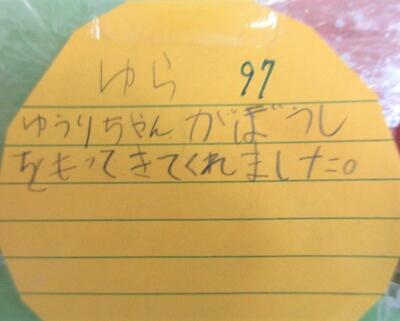 ゆら 97
ゆうりちゃんがぼうし
をもってきてくれました。